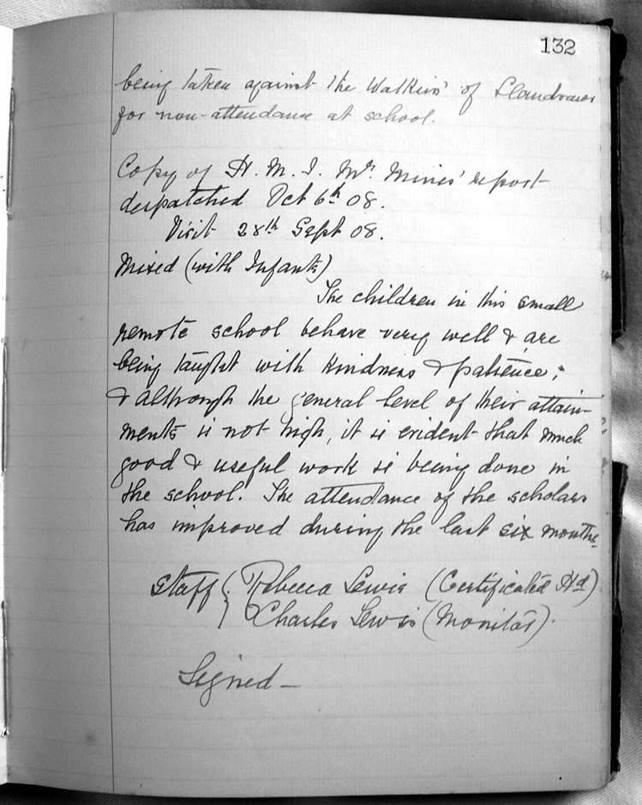 132
being taken against the Watkins' of
for non-attendance at school.
Copy of H. M. I. Mr. Mines' report
despatched Oct 6th 08.
Visit 28th Sept 08.
Mixed (with Infants)
The children in this small
remote school behave very well & are
being taught with kindness & patience;
& although the general level of their attain-
ments is not high, it is evident that much
good & useful work is being done in
the school. The attendance of the scholars
has improved during the last six months.
Staff { Rebecca Lewis (Certificated Hd)
Charles Lewis (Monitor).
Signed –